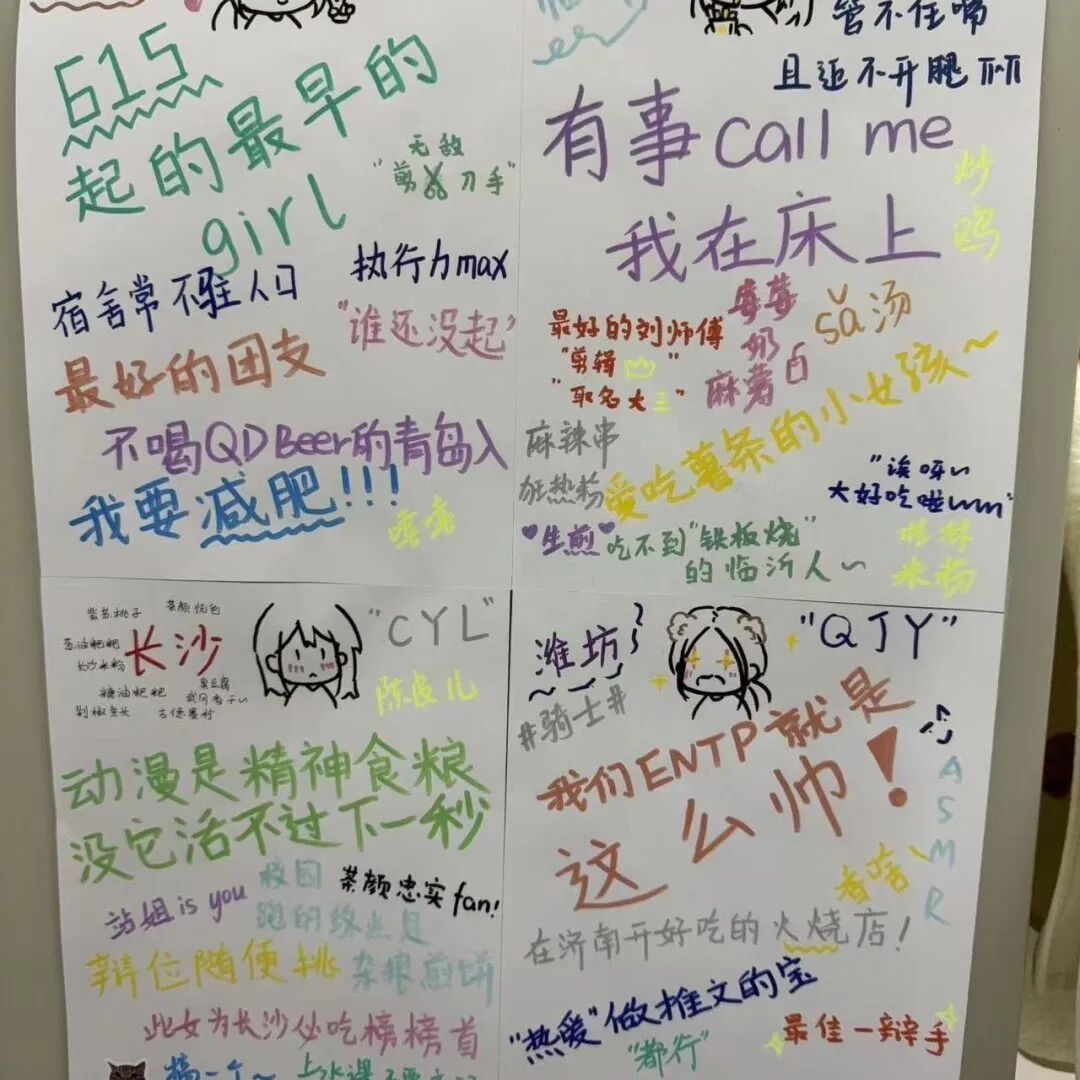 615
起的最早的
girl
无敌
"剪刀手"
宿舍常不驻人口
执行力max
"谁还没起"
最好的团支
不喝QDBeer的青岛人
我要减肥!!!
嘻嘻
管不住嘴
且迈不开腿
有事call me
我在床上
炒鸡
最好的刘师傅
"剪辑"
"取名大王"
莓莓
奶
麻薯
sǎ汤
爱吃薯条的小女孩~
麻辣串
狂热粉
"诶呀~
大好吃啦"
生煎
吃不到"铁板烧"
的临沂人~
桂林
米粉
紫苏桃子
茶颜悦色
葱油粑粑
长沙米粉
长沙
糖油粑粑
臭豆腐
剁椒鱼头
"CYL"
陈皮儿
动漫是精神食粮
没它活不过下一秒
站姐is you
校园
跑的终点是
杂粮煎饼
茶颜忠实fan!
辩位随便挑
此女为长沙必吃榜榜首
搞一个~
潍坊
#骑士#
"QJY"
我们ENTP就是
这么帅!
ASMR
在济南开好吃的火烧店!
"热爱"做推文的宝
"都行"
最佳一辩手